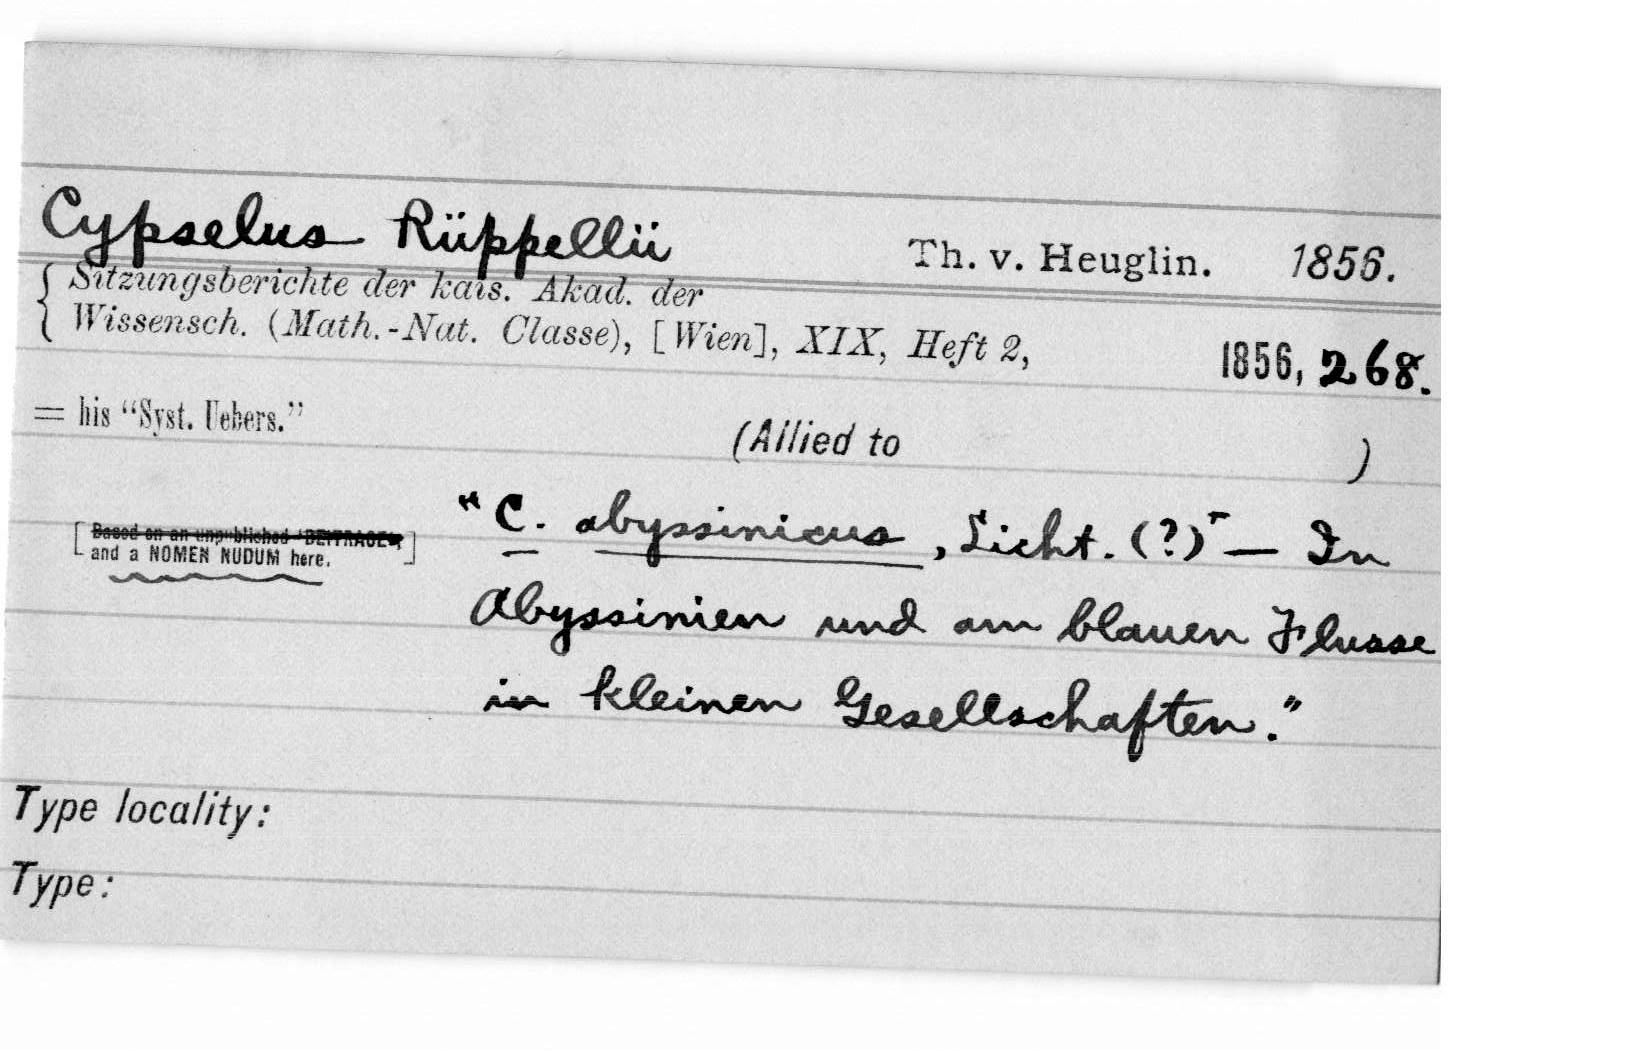 Cypselus Rüppellii Th. v. Heuglin. 1856.
{ Sitzungsberichte der kais. Akad. der
Wissensch. (Math.-Nat. Classe), [Wien], XIX, Heft 2, 1856, 268.
= his "Syst. Uebers."
(Allied to )
"C. abyssinicus, Licht. (?) — In
[Based on an unpublished 'BEITRAGE',
and a NOMEN NUDUM here.]
Abyssinien und am blauen Flusse
in kleinen Gesellschaften."
Type locality:
Type: